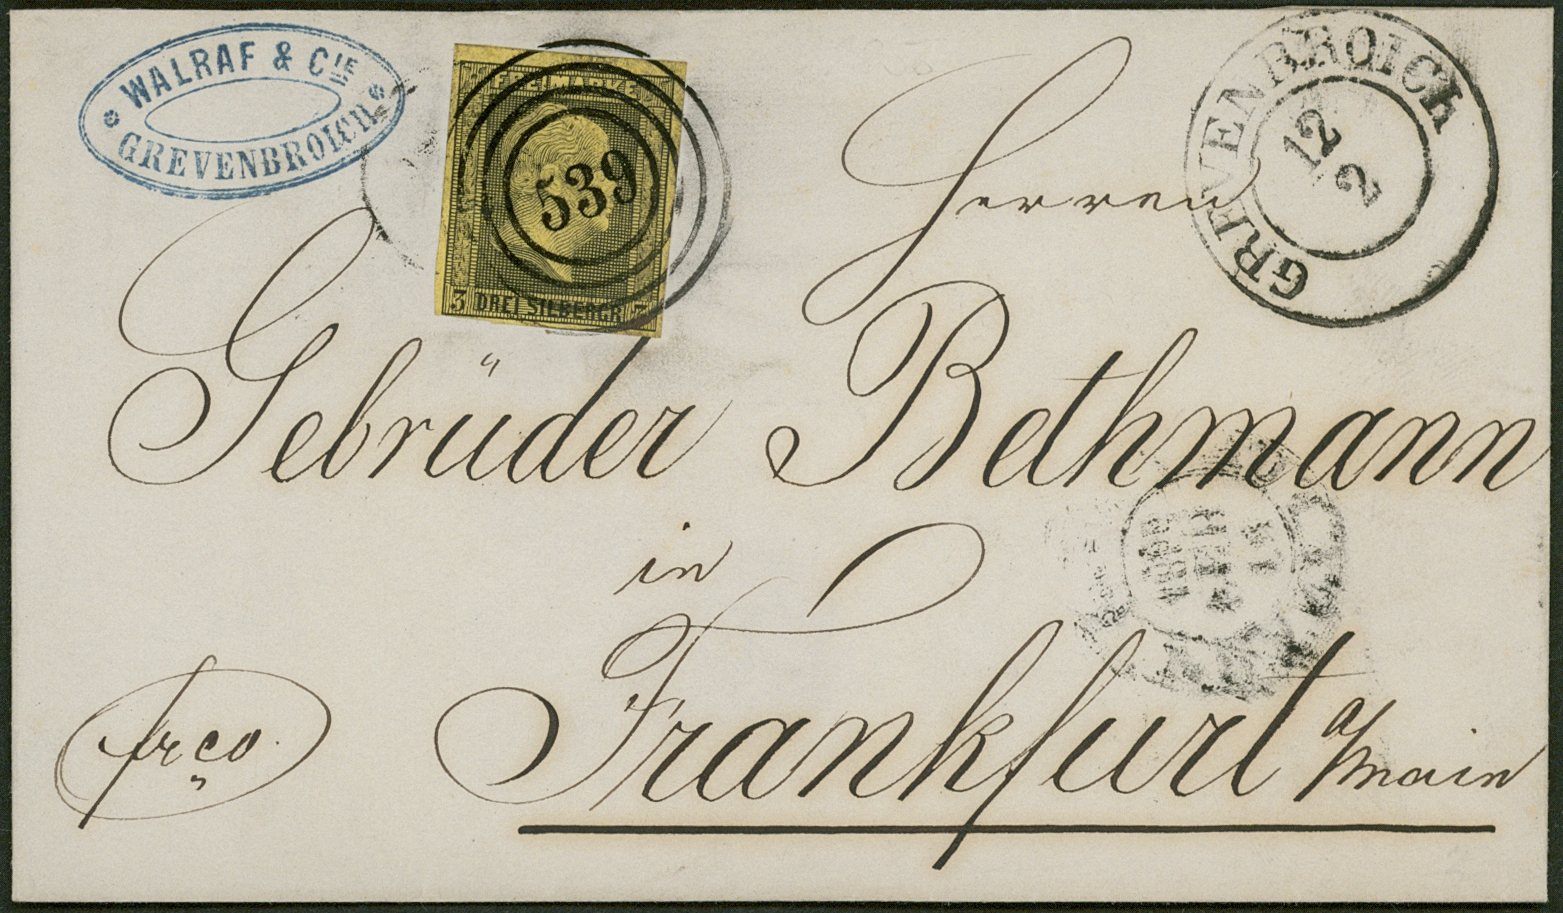 WALRAF & CIE
GREVENBROICH
FREIMARKE
539
3 DREI SILBERGR 3
GREVENBROICH
12
2
Herren
Gebrüder Bethmann
in
Frankfurt a/main
frco